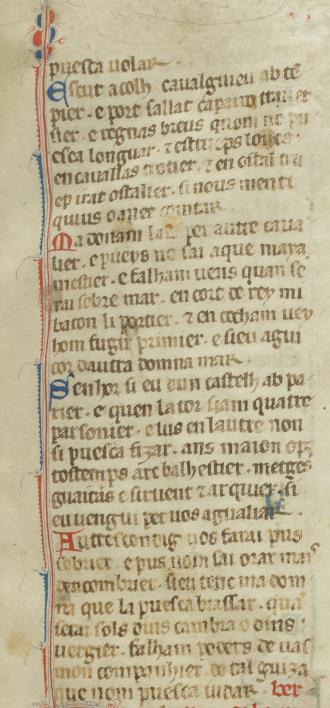 puesca uolar
Escut a colh caualguieu ab tē
pier e port sallat capairo trauer
sier e regnas breus quom no pu
esca longuar z estreups loncs
en cauallas trotier z en ostal tri
ep irat ostalier si nous menti
quius o anet comtar
Ma donam lais per autre caua
lier e pueys no sai a que maya
mestier e falham uens quan se
rai sobre mar en cort de rey mi
baton li portier z en cocham uey
hom fugir primier e sieu agui
cor dautra domna mar
Senhor si eu qun castelh ab pa
rier e quen la tor siam quatre
parsonier e lus en lautre non
si puesca fizar ans maion ops
tostemps arc balhestier metges
guaitas e siruent z arquier si
eu uengui per uos agualiar
Autrescondig uos farai pus
sobrier e pus nom sai orar mais
dencombrier sieu tenc ma dom
na que la puesca brassar qua
serai sols dins cambra o dins
uergier falham poders de uas
mon companhier de tal guiza
que nom puesca uidar ber